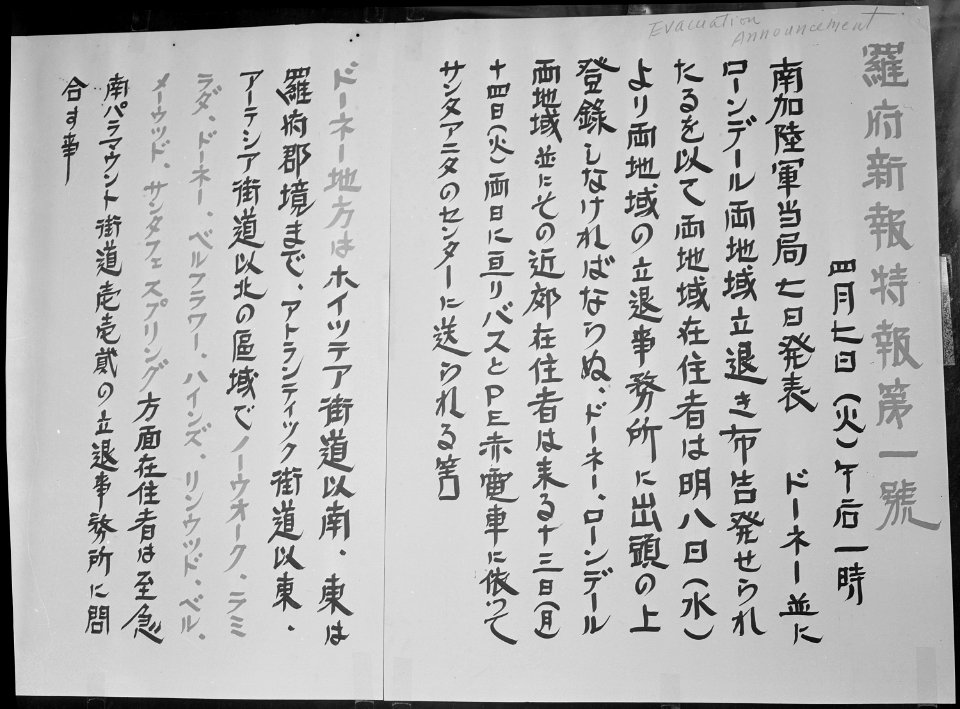 Evacuation
Announcement
羅府新報特報第一號
四月七日(火)午后一時
南加陸軍当局七日発表 ドーネー並に
ローンデール両地域立退き布告発せられ
たるを以て両地域在住者は明八日(水)
より両地域の立退事務所に出頭の上
登録しなければならぬ、ドーネー、ローンデール
両地域並にその近郊在住者は来る十三日(月)
十四日(火)両日に亘りバスとPE赤電車に依つて
サンタアニタのセンターに送られる筈
ドーネー地方はホイツテア街道以南、東は
羅府郡境まで、アトランティック街道以東、
アーテシア街道以北の區域でノーウオーク、ラミ
ラダ、ドーネー、ベルフラワー、ハインズ、リンウッド、ベル、
メーウッド、サンタフェスプリング方面在住者は至急
南パラマウント街道壱壱貳の立退事務所に問
合す事